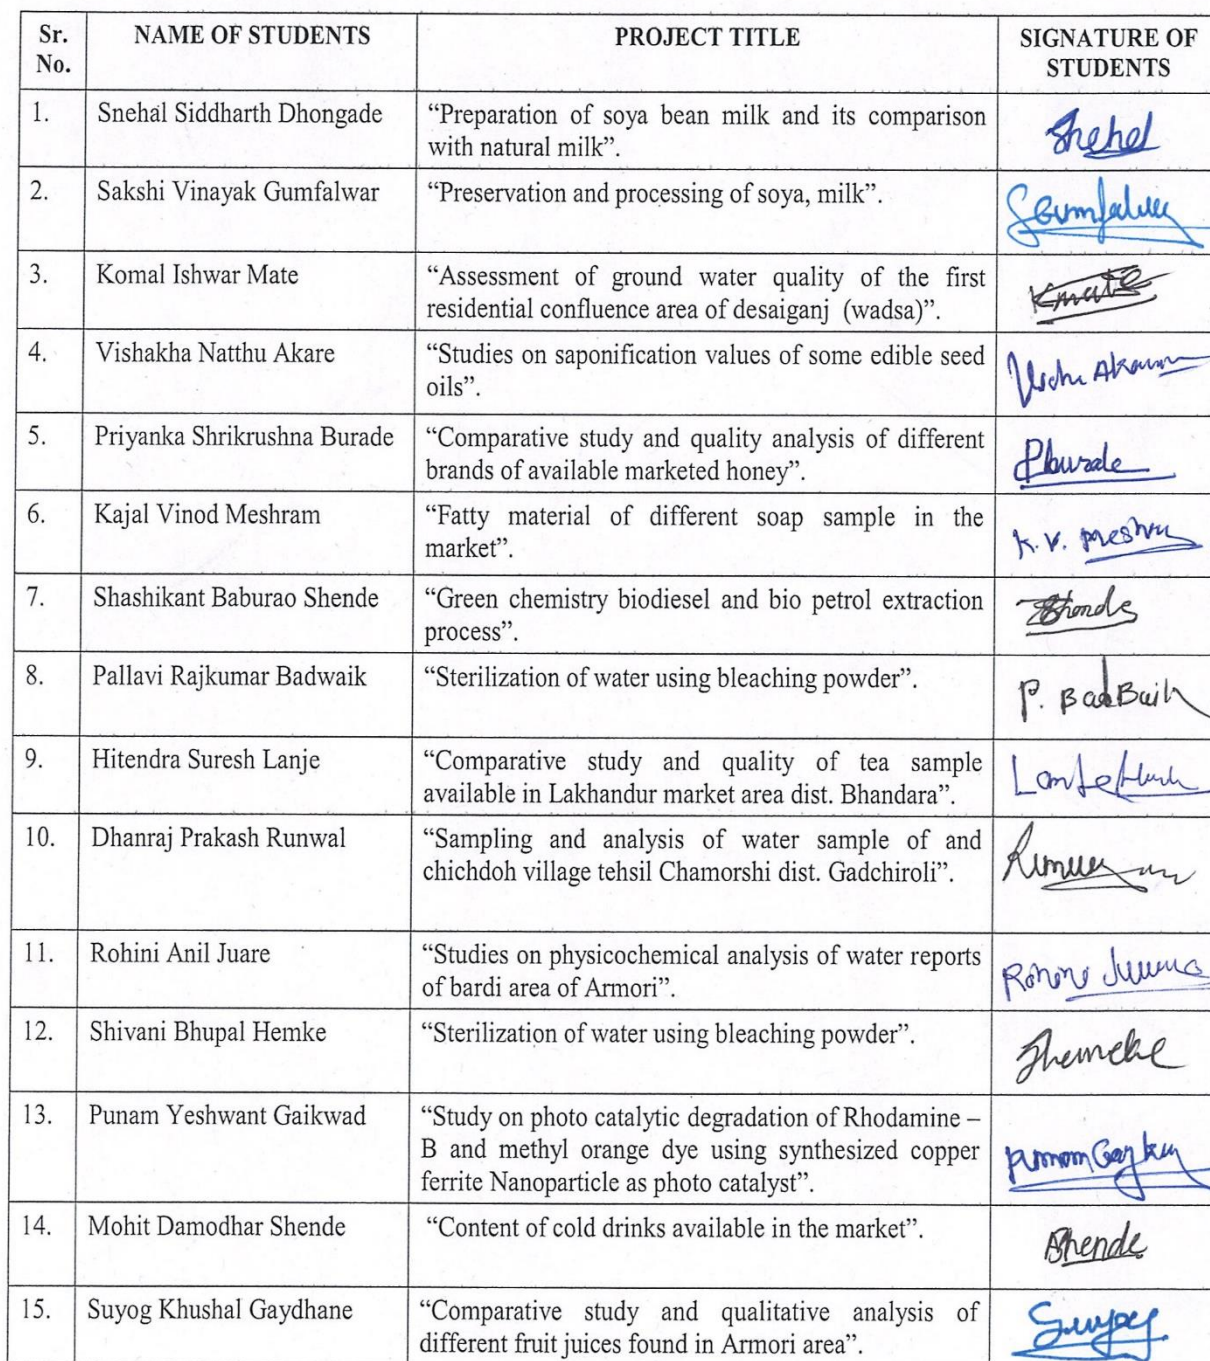 Sr. No. NAME OF STUDENTS PROJECT TITLE SIGNATURE OF STUDENTS
1. Snehal Siddharth Dhongade “Preparation of soya bean milk and its comparison
with natural milk”.
Snehal
2. Sakshi Vinayak Gumfalwar “Preservation and processing of soya, milk”.
3. Komal Ishwar Mate “Assessment of ground water quality of the first
residential confluence area of desaiganj (wadsa)”.
Kmate
4. Vishakha Natthu Akare “Studies on saponification values of some edible seed
oils”.
5. Priyanka Shrikrushna Burade “Comparative study and quality analysis of different
brands of available marketed honey”.
PBurade
6. Kajal Vinod Meshram “Fatty material of different soap sample in the
market”.
K. V.
7. Shashikant Baburao Shende “Green chemistry biodiesel and bio petrol extraction
process”.
8. Pallavi Rajkumar Badwaik “Sterilization of water using bleaching powder”.
P. BadBaik
9. Hitendra Suresh Lanje “Comparative study and quality of tea sample
available in Lakhandur market area dist. Bhandara”.
10. Dhanraj Prakash Runwal “Sampling and analysis of water sample of and
chichdoh village tehsil Chamorshi dist. Gadchiroli”.
11. Rohini Anil Juare “Studies on physicochemical analysis of water reports
of bardi area of Armori”.
12. Shivani Bhupal Hemke “Sterilization of water using bleaching powder”.
13. Punam Yeshwant Gaikwad “Study on photo catalytic degradation of Rhodamine –
B and methyl orange dye using synthesized copper
ferrite Nanoparticle as photo catalyst”.
14. Mohit Damodhar Shende “Content of cold drinks available in the market”.
Shende
15. Suyog Khushal Gaydhane “Comparative study and qualitative analysis of
different fruit juices found in Armori area”.
Suyog